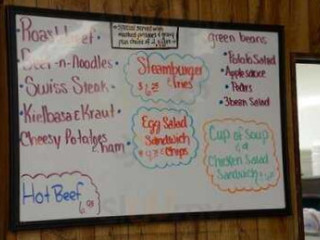 Roast beef
Beef-n-Noodles
Swiss Steak
Kielbasa & Kraut
Cheesy Potatoes
& ham
Hot Beef
Special served with
mashed potatoes & gravy
plus choice of 2 sides
Steamburger
& fries
Egg Salad
Sandwich
& Chips
green beans
Potato Salad
Applesauce
Pears
3bean Salad
Cup of Soup
Chicken Salad
Sandwich